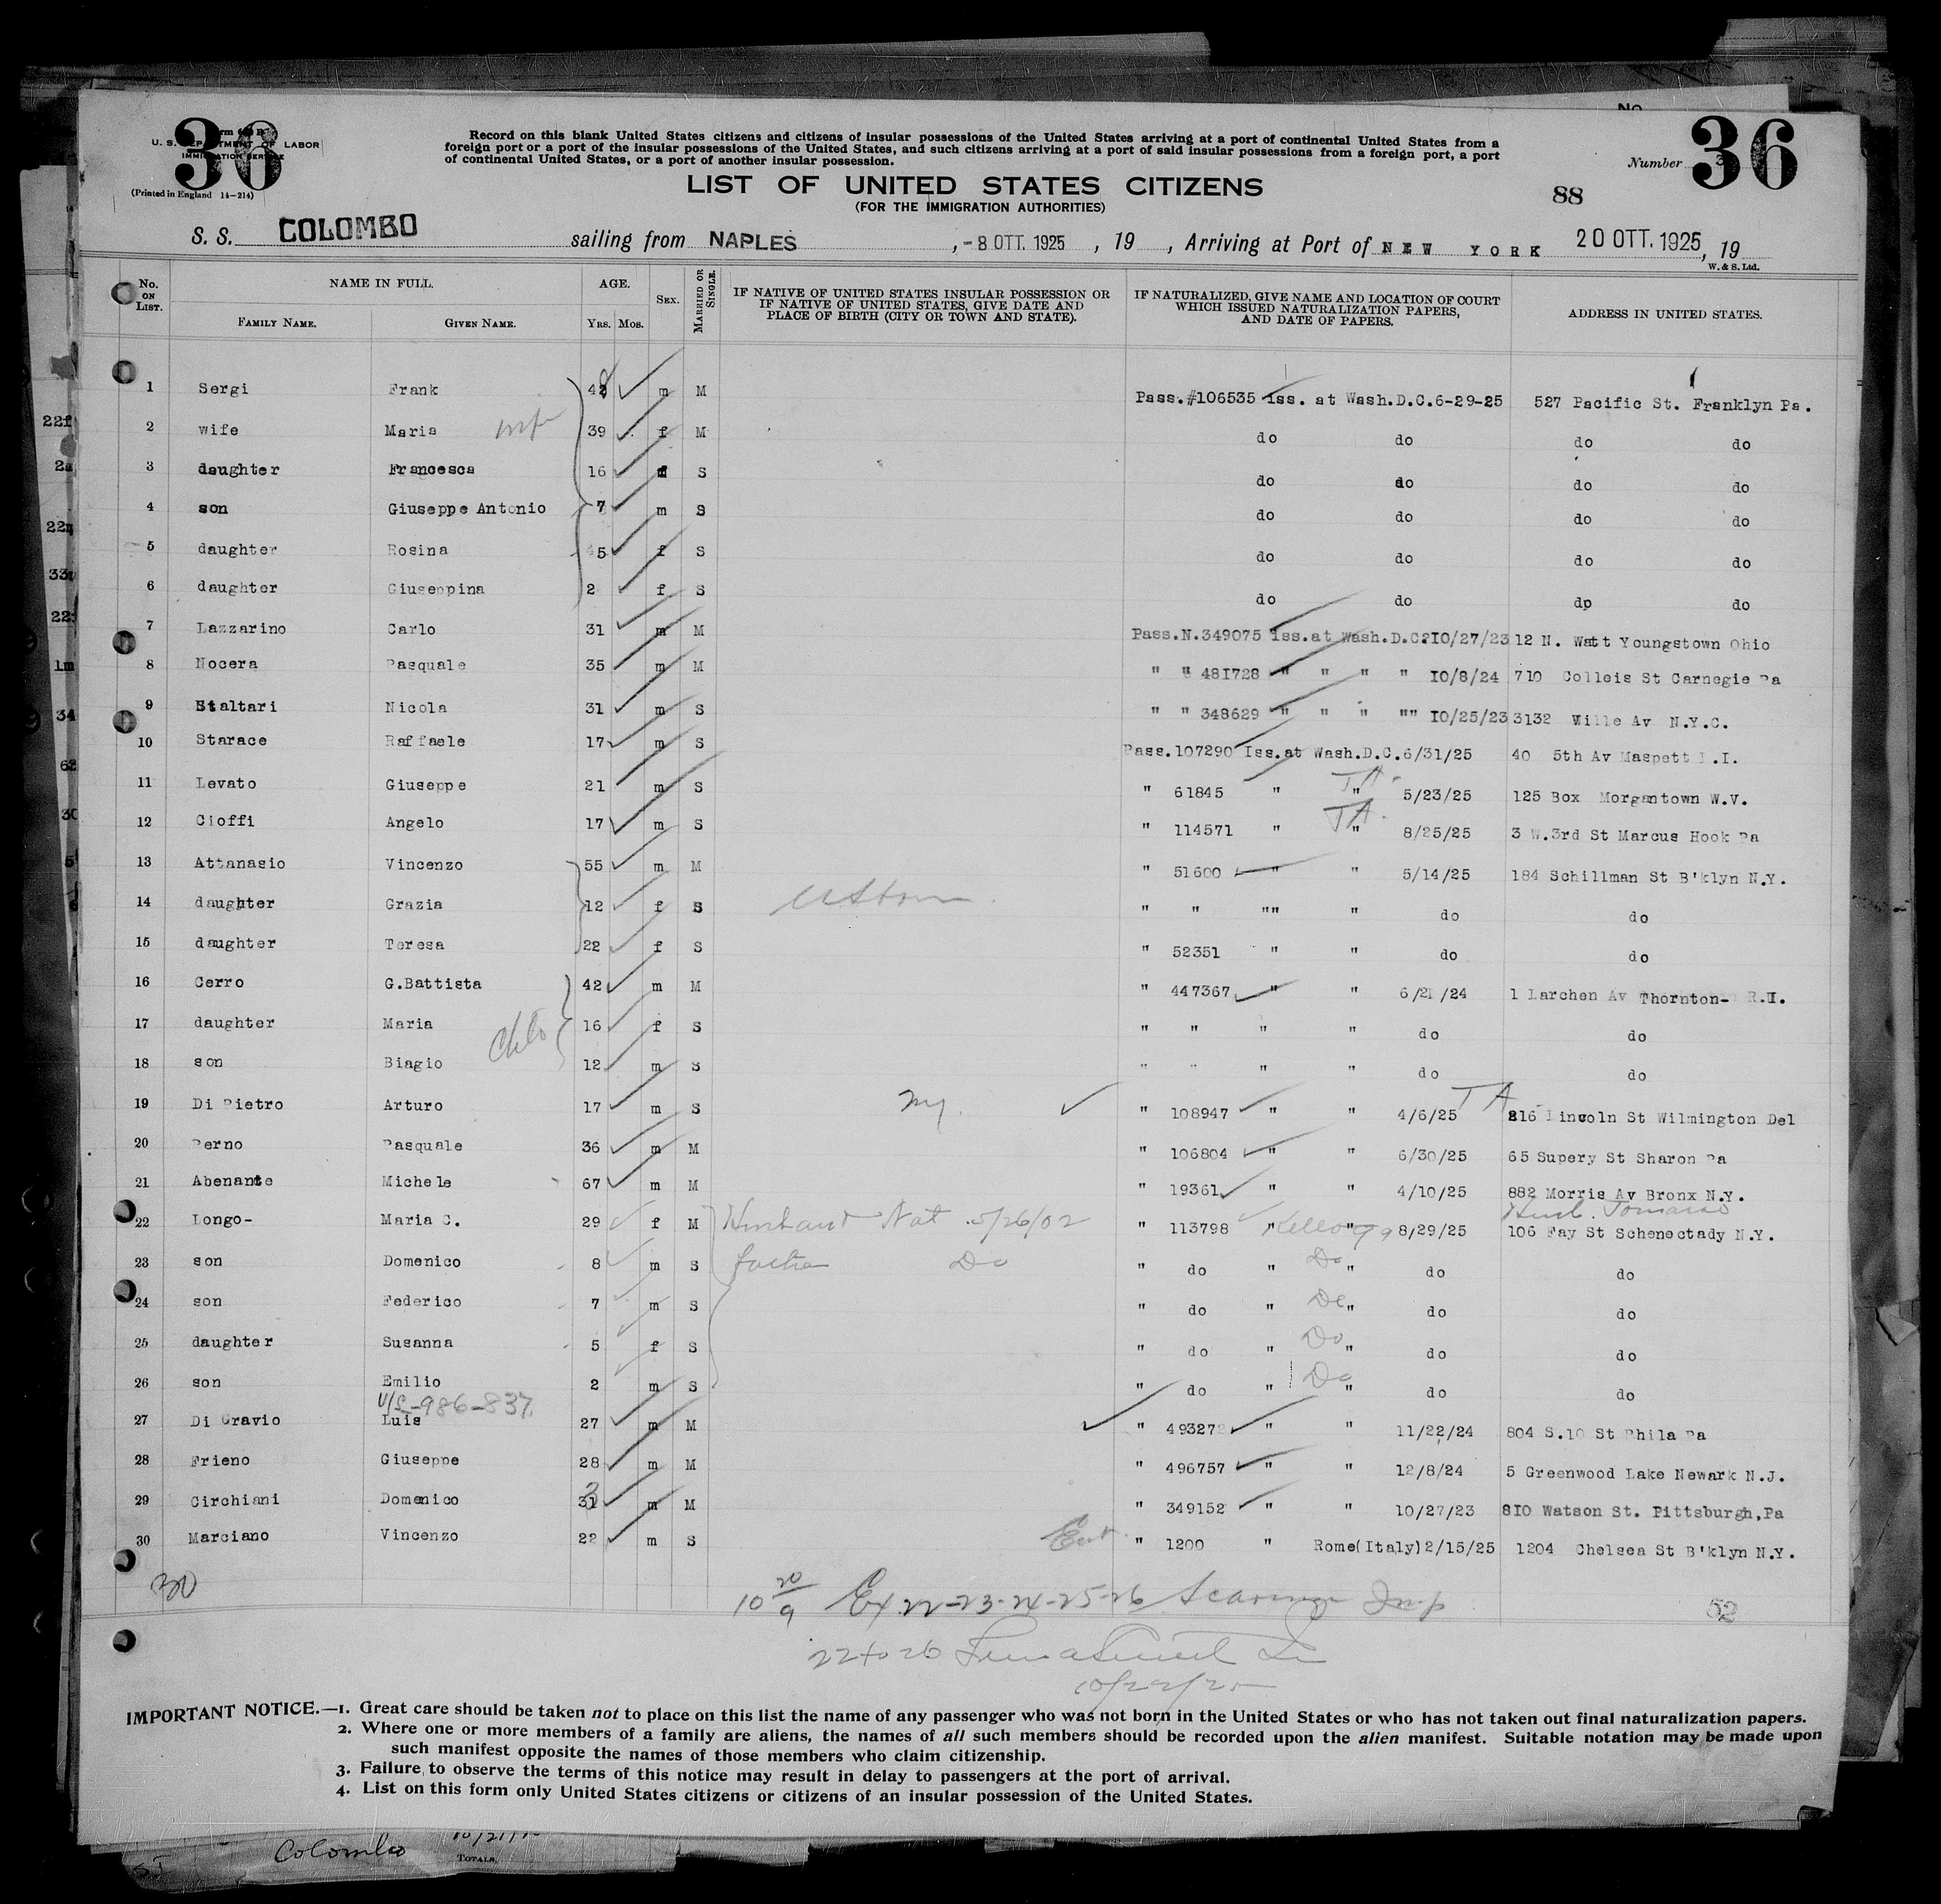 36
Form 630 B
U. S. DEPARTMENT OF LABOR
IMMIGRATION SERVICE
(Printed in England 14-214)
Record on this blank United States citizens and citizens of insular possessions of the United States arriving at a port of continental United States from a
foreign port or a port of the insular possessions of the United States, and such citizens arriving at a port of said insular possessions from a foreign port, a port
of continental United States, or a port of another insular possession.
No.
Number 36
LIST OF UNITED STATES CITIZENS
(FOR THE IMMIGRATION AUTHORITIES)
88
S. S. COLOMBO sailing from NAPLES, -8 OTT. 1925, 19 , Arriving at Port of NEW YORK 20 OTT. 1925, 19
W. & S. Ltd.
No. ON LIST. NAME IN FULL. FAMILY NAME. GIVEN NAME. AGE. YRS. MOS. SEX. MARRIED OR SINGLE. IF NATIVE OF UNITED STATES INSULAR POSSESSION OR IF NATIVE OF UNITED STATES, GIVE DATE AND PLACE OF BIRTH (CITY OR TOWN AND STATE). IF NATURALIZED, GIVE NAME AND LOCATION OF COURT WHICH ISSUED NATURALIZATION PAPERS, AND DATE OF PAPERS. ADDRESS IN UNITED STATES.
1 Sergi Frank 48 m M Pass.#106535 iss. at Wash.D.C.6-29-25 527 Pacific St. Franklyn Pa.
2 wife Maria 39 f M do do do do
3 daughter Francesca 16 f S do do do do
4 son Giuseppe Antonio 7 m S do do do do
5 daughter Rosina 5 f S do do do do
6 daughter Giuseppina 2 f S do do dp do
7 Lazzarino Carlo 31 m M Pass.N.349075 iss.at Wash.D.C.10/27/23 12 N. Watt Youngstown Ohio
8 Nocera Pasquale 35 m M " " 481728 " " " " 10/8/24 710 Colleis St Carnegie Pa
9 Staltari Nicola 31 m S " " 348629 " " " "" 10/25/23 3132 Wille Av N.Y.C.
10 Starace Raffaele 17 m S Pass.107290 Iss.at Wash.D.C.6/31/25 40 5th Av Maspett L.I.
11 Levato Giuseppe 21 m S " 61845 " TA. " 5/23/25 125 Box Morgantown W.V.
12 Cioffi Angelo 17 m S " 114571 " TA. " 8/25/25 3 W.3rd St Marcus Hook Pa
13 Attanasio Vincenzo 55 m M " 51600 " " 5/14/25 184 Schillman St B'klyn N.Y.
14 daughter Grazia 12 f S " " "" " do do
15 daughter Teresa 22 f S " 52351 " " do do
16 Cerro G.Battista 42 m M " 447367 " " 6/21/24 1 Larchen Av Thornton- R.I.
17 daughter Maria 16 f S " " " " do do
18 son Biagio 12 m S " " " " do do
19 Di Pietro Arturo 17 m S " 108947 " " 4/6/25 TA 816 Lincoln St Wilmington Del
20 Perno Pasquale 36 m M " 106804 " " 6/30/25 65 Supery St Sharon Pa
21 Abenante Michele 67 m M " 19361 " " 4/10/25 882 Morris Av Bronx N.Y.
Husb. Tomaso
22 Longo- Maria C. 29 f M Husband Nat 5/26/02 " 113798 " Kellogg " 8/29/25 106 Fay St Schenectady N.Y.
23 son Domenico 8 m S father Do " do " Do " do do
24 son Federico 7 m S " do " Do " do do
25 daughter Susanna 5 f S " do " Do " do do
26 son Emilio 2 m S " do " Do " do do
V/L-986-837
27 Di Gravio Luis 27 m M " 493272 " " 11/22/24 804 S.10 St Phila Pa
28 Frieno Giuseppe 28 m M " 496757 " " 12/8/24 5 Greenwood Lake Newark N.J.
29 Circhiani Domenico 31 m M " 349152 " " 10/27/23 810 Watson St. Pittsburgh,Pa
30 Marciano Vincenzo 22 m S " 1200 " Rome(Italy)2/15/25 1204 Chelsea St B'klyn N.Y.
30
10 20/9 Ex 22-23-24-25-26 Insp
52
22 to 26
10/22/25
IMPORTANT NOTICE.—1. Great care should be taken not to place on this list the name of any passenger who was not born in the United States or who has not taken out final naturalization papers.
2. Where one or more members of a family are aliens, the names of all such members should be recorded upon the alien manifest. Suitable notation may be made upon
such manifest opposite the names of those members who claim citizenship.
3. Failure to observe the terms of this notice may result in delay to passengers at the port of arrival.
4. List on this form only United States citizens or citizens of an insular possession of the United States.
Colombo
TOTALS